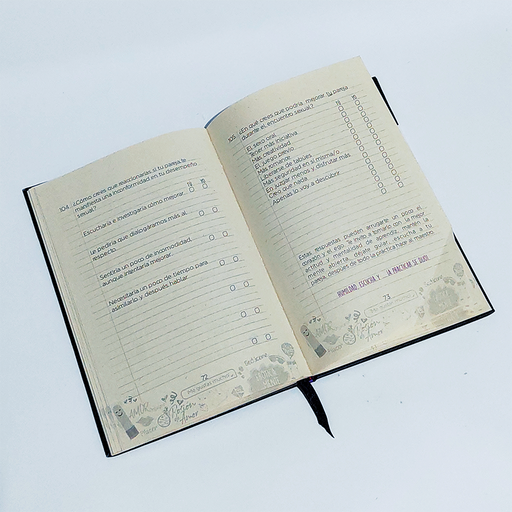 104. ¿Cómo crees que reaccionarías si tu pareja te
manifiesta una inconformidad en tu desempeño
sexual?
Escucharía e investigaría cómo mejorar.
Le pediría que dialogáramos más al
respecto.
Sentiría un poco de incomodidad,
aunque intentaría mejorar.
Necesitaría un poco de tiempo para
asimilarlo y después hablar.
72
Me gustas mucho
AMOR
Placer
Pasión
Amor
Seducirte
105. ¿En qué crees que podría mejorar tu pareja
durante el encuentro sexual?
El sexo oral
Tener más iniciativa
Más creatividad
El juego previo
Más romance
Liberarse de tabúes
Más seguridad en sí misma/o
En juzgar menos y disfrutar más
Creo que nada
Apenas lo voy a descubrir
Estas respuestas pueden arrugarte un poco el
corazón y el ego. Te invito a tomarlo con la mejor
actitud y mentalidad de aprendiz, mantén la
mente abierta, déjate guiar, escucha a tu
pareja, después de todo la práctica hace al maestro.
HUMILDAD, ESCUCHA Y ... ¡A PRACTICAR SE DIJO!
73
AMOR
Placer
Pasión
Amor